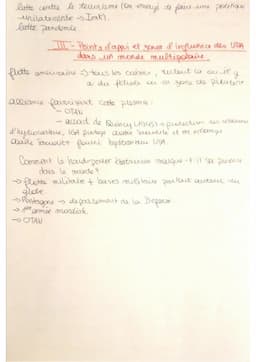 lutte contre le terrorisme (ex envoyé de faire une politique
unilatéraliste → Irak).
lutte pandémie.
III - Points d'appui et zones d'influence des USA
dans un monde multipolaire.
flotte américaine → tous les océans, surtout là où il y
a du pétrole ou des zones de
alliance favorisant cette
- OTAN
- accord de Quincy (1945) → protection des réserves
d'hydrocarbure, USA protège Arabie Saoudite et en échange
Arabie Saoudite fournit USA.
Comment le hard power étatsunien marque-t-il sa puissance
dans le monde ?
→ flotte militaire + bases militaires partout autour du
globe
→ Pentagone → département de la Défense
→ 1ère armée mondiale
→ OTAN